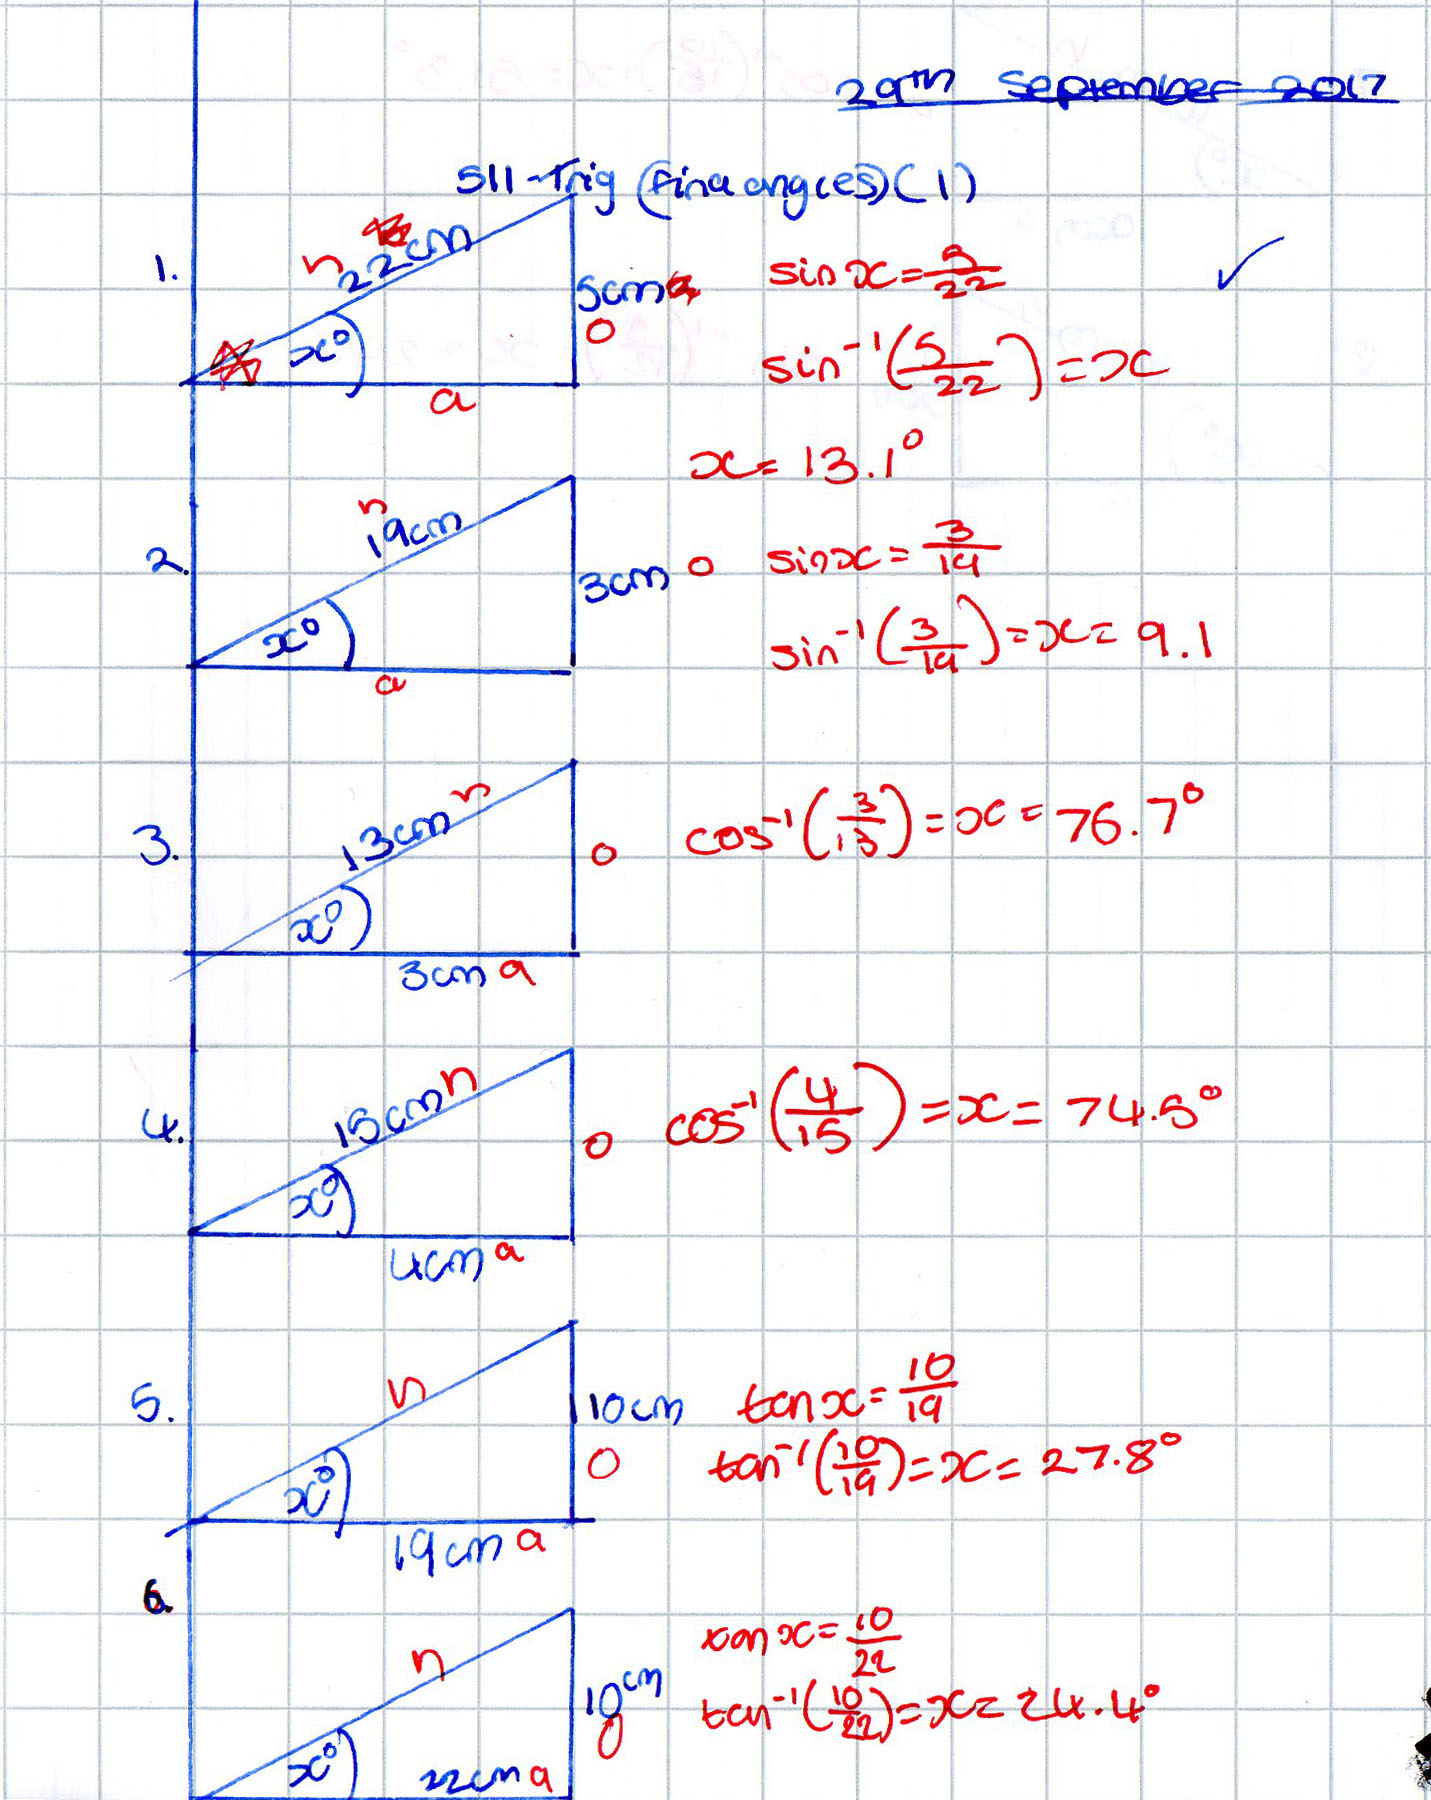 29th September 2017
511-Trig (find angles) (1)
1.
h 22cm
5cm
o
x°
a
sin x = 5/22
sin⁻¹(5/22) = x
x = 13.1°
2.
h
19cm
3cm o
x°
a
sin x = 3/19
sin⁻¹(3/19) = x = 9.1
3.
13cm h
o
x°
3cm a
cos⁻¹(3/13) = x = 76.7°
4.
15cm h
o
x°
4cm a
cos⁻¹(4/15) = x = 74.5°
5.
h
10cm
o
x°
19cm a
tan x = 10/19
tan⁻¹(10/19) = x = 27.8°
6.
h
10cm
o
x°
22cm a
tan x = 10/22
tan⁻¹(10/22) = x = 24.4°